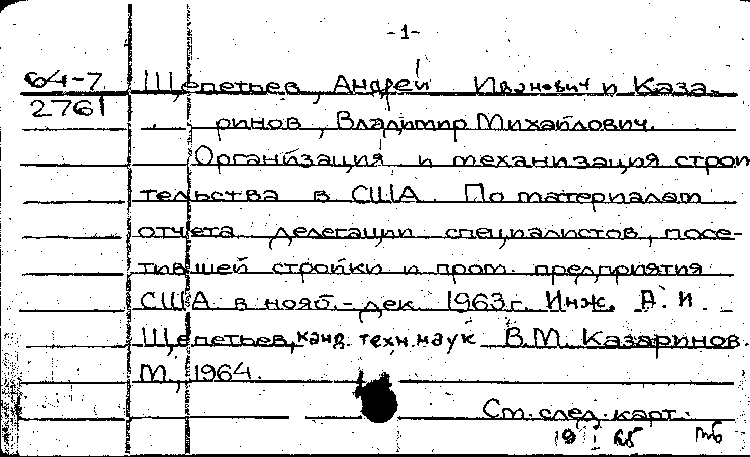 -1-
64-7 Щепетьев, Андрей Иванович и Каза-
2761 ринов, Владимир Михайлович.
Организация и механизация строи
тельства в США. По материалам
отчета делегации специалистов, посе-
тившей стройки и пром. предприятия
США в нояб.-дек. 1963г. Инж. А.И.
Щепетьев, канд. техн. наук В.М. Казаринов.
М., 1964.
См. след. карт.